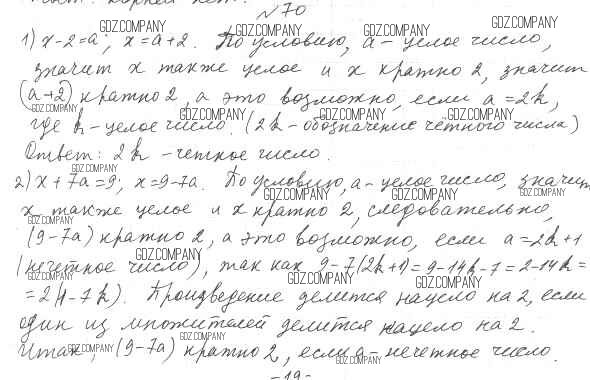 №70
1) x-2=a; x=a+2. По условию, a - целое число,
значит x также целое и x кратно 2, значит
(a+2) кратно 2, а это возможно, если a=2k,
где k - целое число. (2k - обозначение чётного числа)
Ответ: 2k - четное число.
2) x+7a=9; x=9-7a. По условию, a - целое число, значит
x также целое и x кратно 2, следовательно,
(9-7a) кратно 2, а это возможно, если a=2k+1
(нечетное число), так как 9-7(2k+1)=9-14k-7=2-14k=
=2(1-7k). Произведение делится нацело на 2, если
один из множителей делится нацело на 2.
Итак, (9-7a) кратно 2, если a - нечетное число.
-19-
GDZ.COMPANY